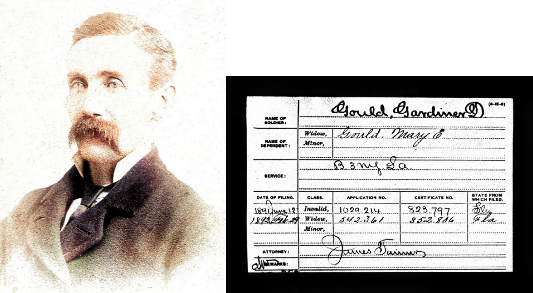 (3-35-3)
NAME OF SOLDIER: Gould, Gardiner D
NAME OF DEPENDENT: Widow, Gould, Mary E
Minor,
SERVICE: B 3 NY L a
DATE OF FILING. CLASS. APPLICATION NO. CERTIFICATE NO. STATE FROM WHICH FILED.
1891 June 12 Invalid, 1029.214 823.797
Widow, 542.361 352.816 Fla
Minor,
ATTORNEY: James Tanner
REMARKS: